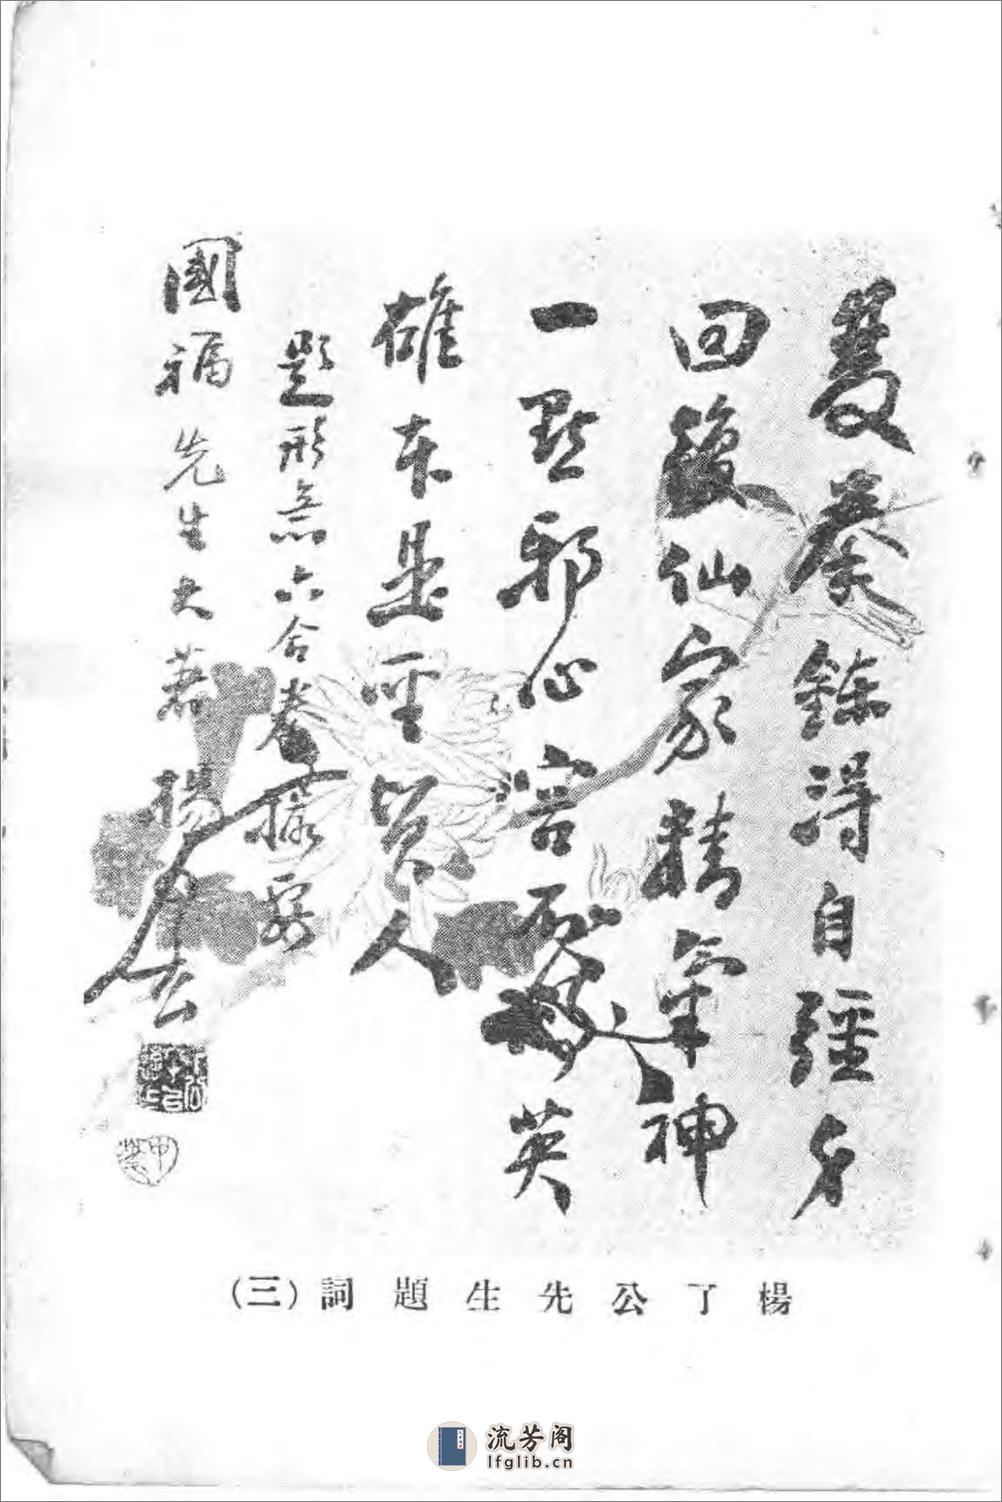 雙拳鍊得自彊身
回復仙家精氣神
一點邪心容不得英
雄本是聖賢人
題形意六合拳撮要
國福先生大著 楊了公
楊了公先生題詞（三）
流芳阁
lfglib.cn